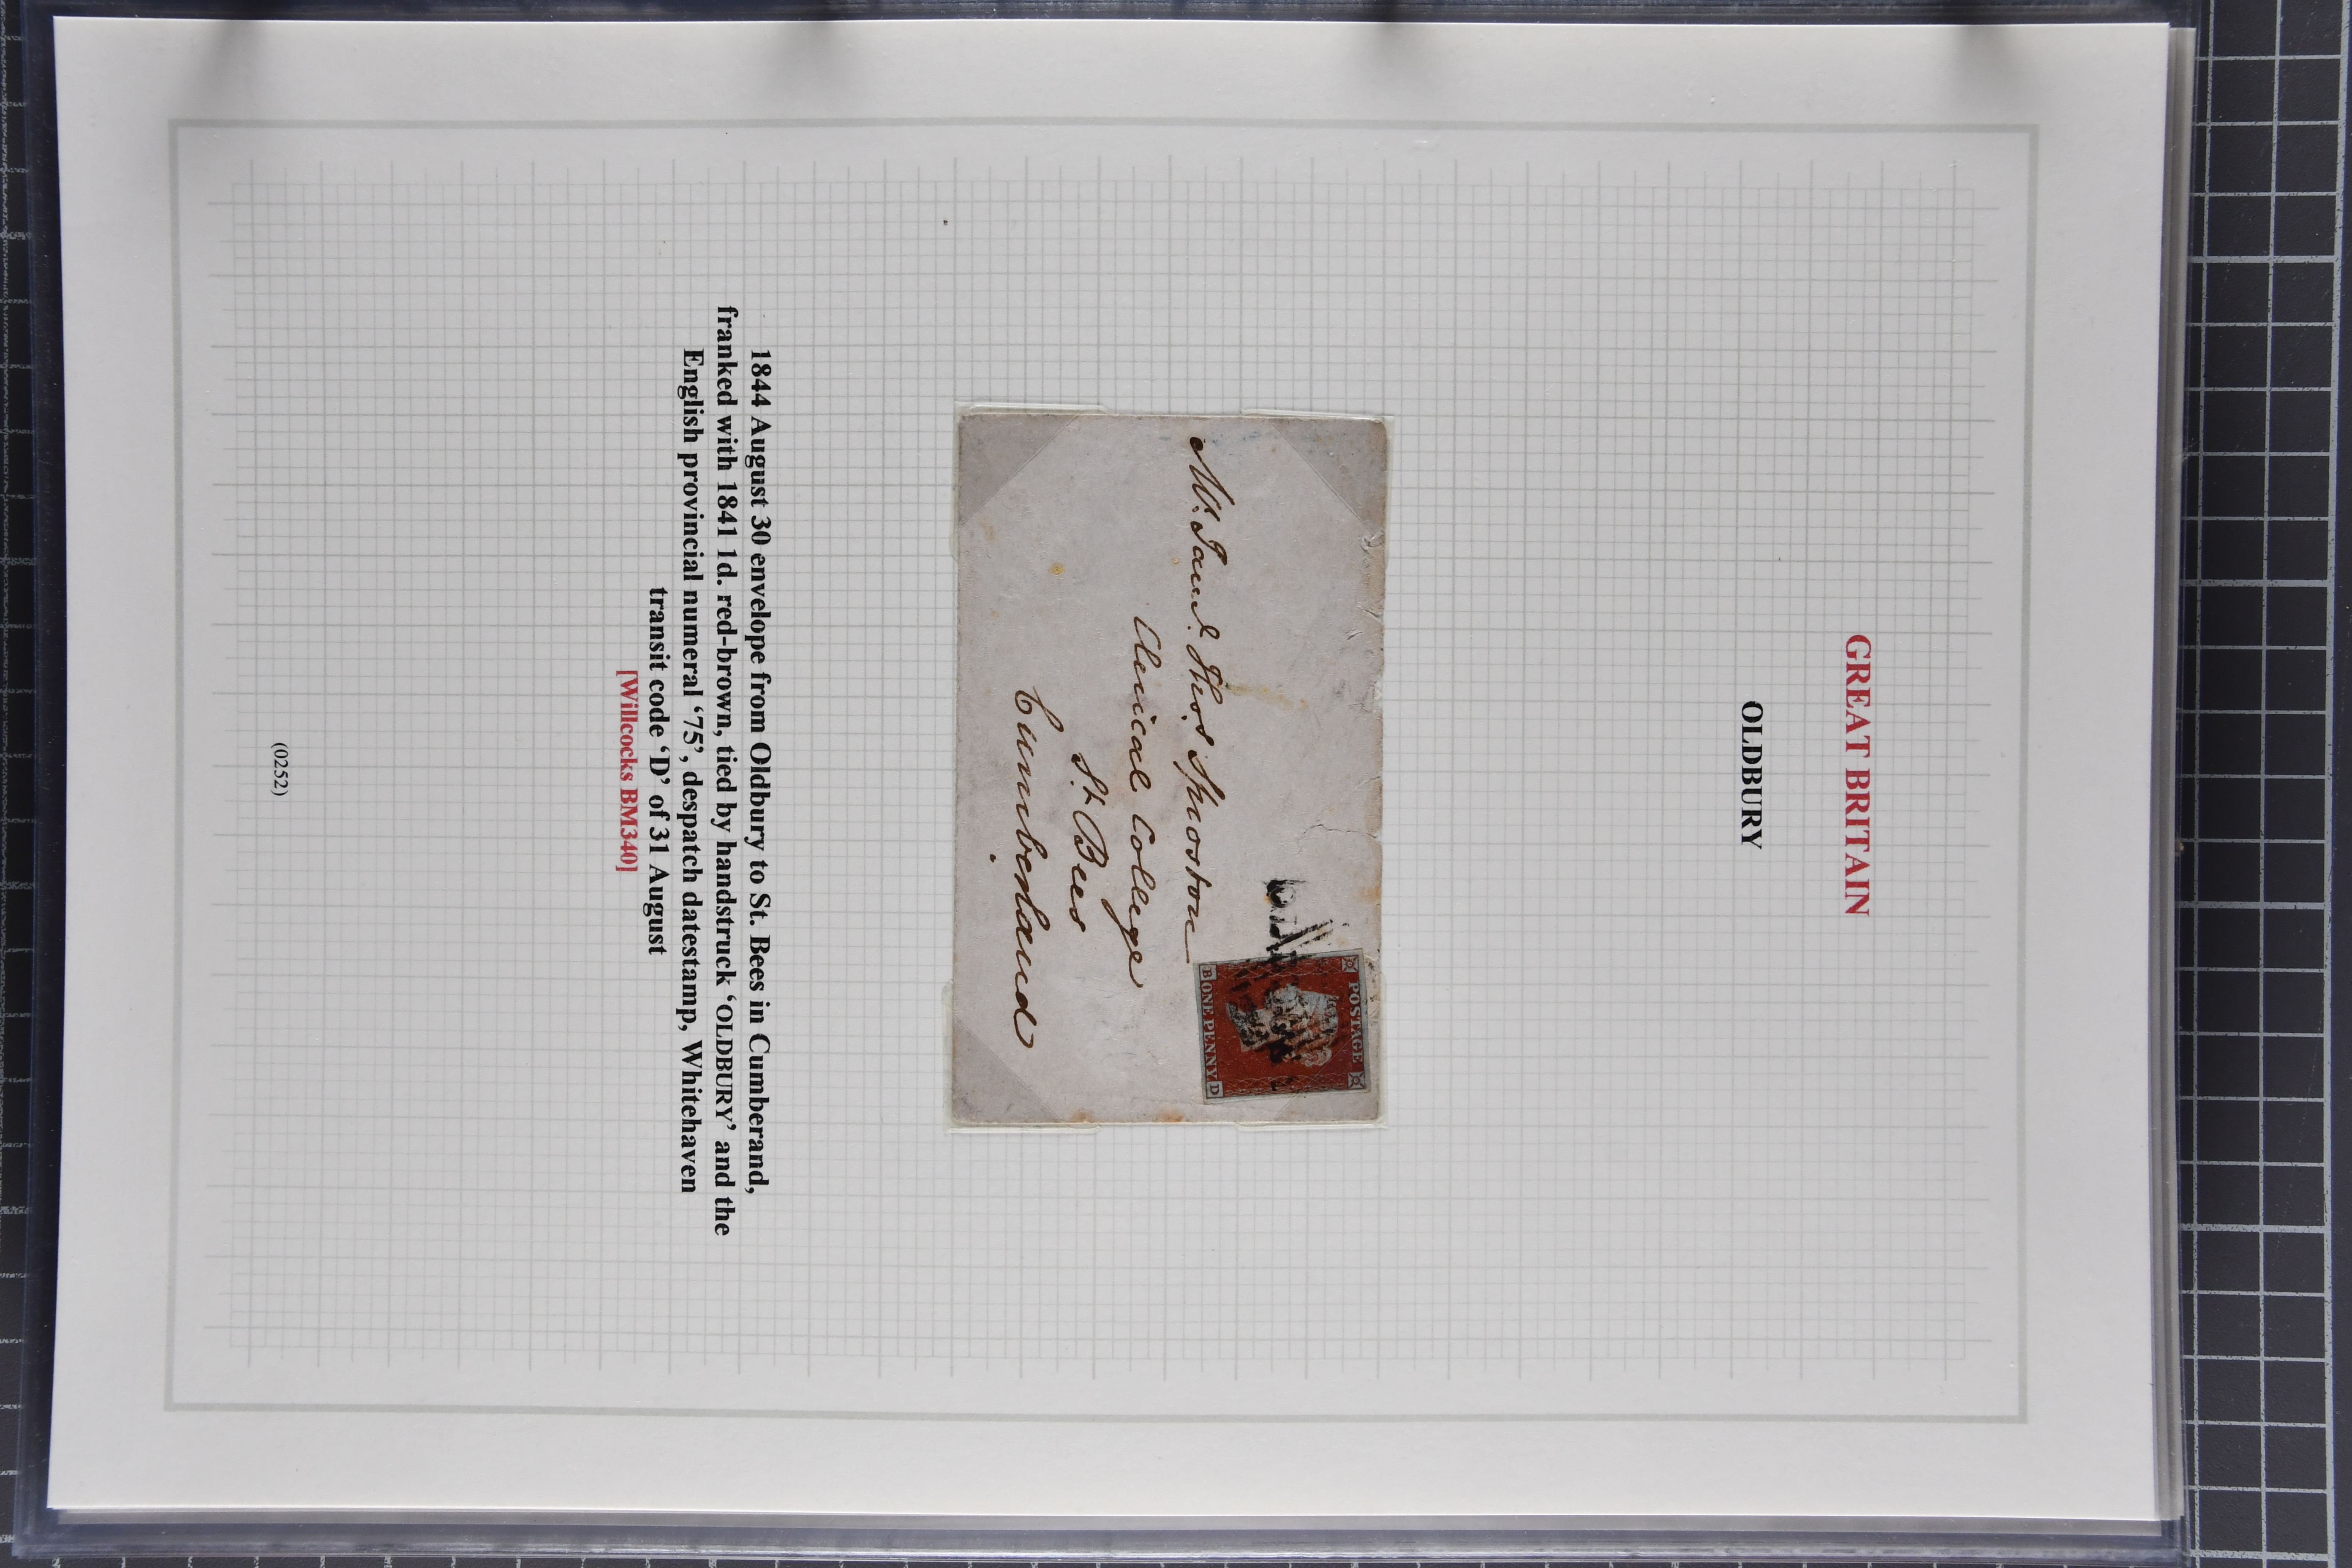 GREAT BRITAIN
OLDBURY
POSTAGE
B ONE PENNY D
Mr. Saml. Thos. Sproston
Clerical College
St. Bees
Cumberland
1844 August 30 envelope from Oldbury to St. Bees in Cumberand,
franked with 1841 1d. red-brown, tied by handstruck ‘OLDBURY’ and the
English provincial numeral ‘75’, despatch datestamp, Whitehaven
transit code ‘D’ of 31 August
[Willcocks BM340]
(0252)